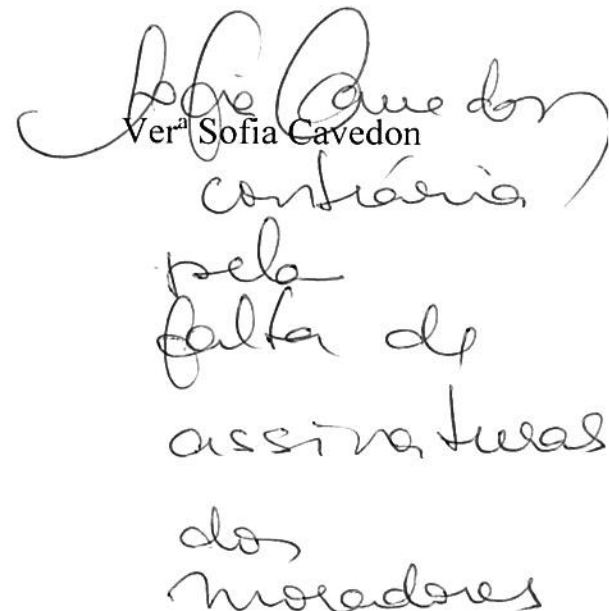 Sofia Cavedon
Verª Sofia Cavedon
contrária
pela
falta de
assinaturas
dos
moradores